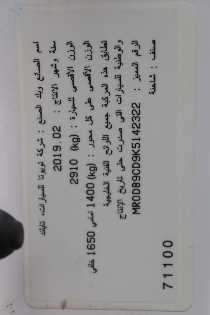 اسم الصانع وبلد الصنع : شركة تويوتا للسيارات، تايلند
سنة وشهر الإنتاج : 02 . 2019
الوزن الأقصى للسيارة : (kg) 2910
الوزن الأقصى على كل محور : (kg) 1400 أمامي 1650 خلفي
تطابق هذه المركبة جميع اللوائح الفنية الخليجية
والوطنية للسيارات التي صدرت حتى تاريخ الإنتاج
الرقم المميز : MR0DB9CD9K5142322
صنف : شاحنة
71100